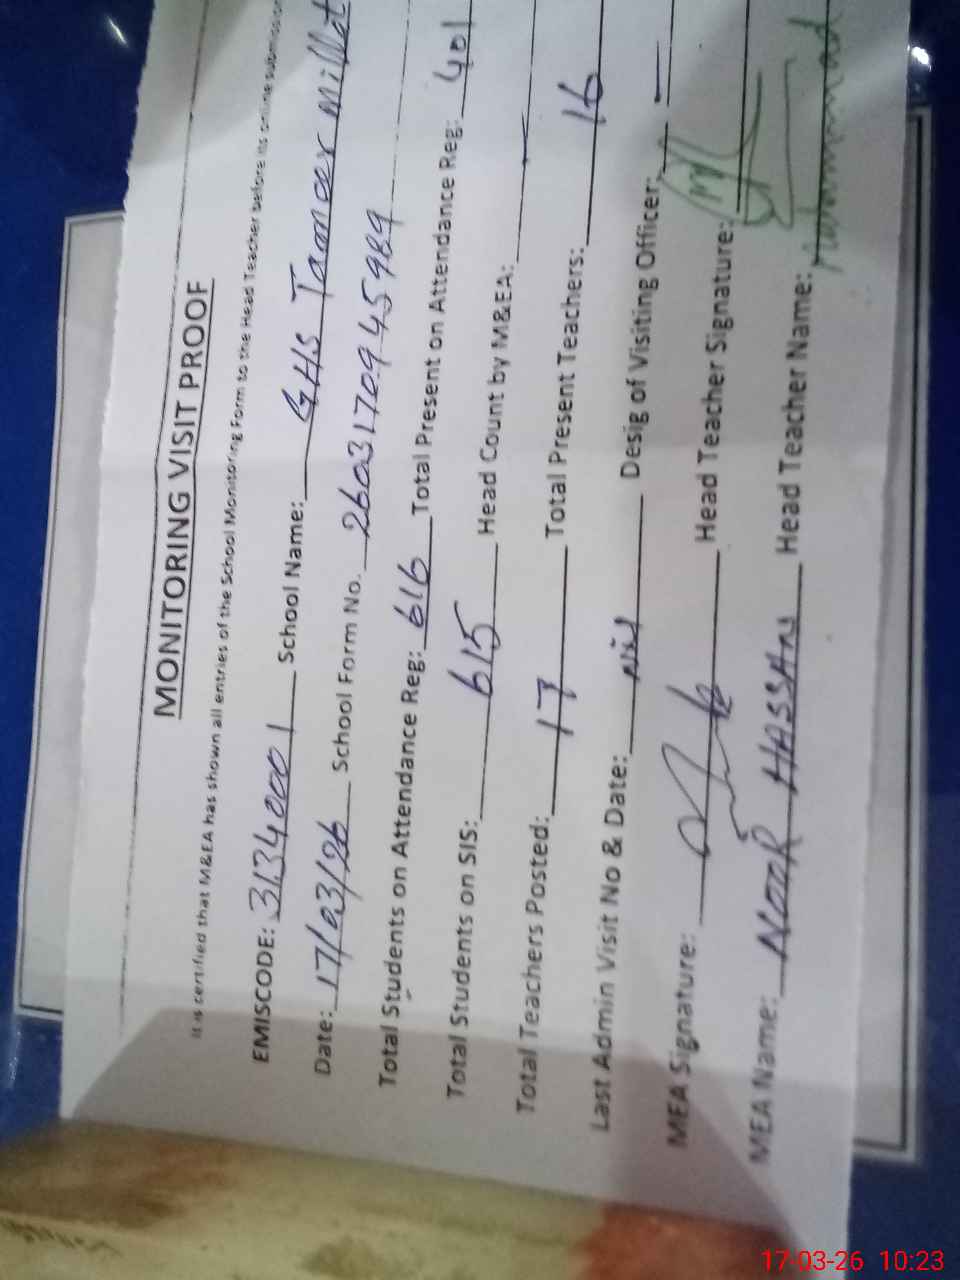 MONITORING VISIT PROOF
It is certified that M&EA has shown all entries of the School Monitoring Form to the Head Teacher before its online submission
EMISCODE: 31340001 School Name: GHS Tameer Millat
Date: 17/03/26 School Form No. 260317094 45989
Total Students on Attendance Reg: 616 Total Present on Attendance Reg: 401
Total Students on SIS: 615 Head Count by M&EA:
Total Teachers Posted: 17 Total Present Teachers: 16
Last Admin Visit No & Date: nil Desig of Visiting Officer: —
MEA Signature: Head Teacher Signature:
MEA Name: NOOR HASSAN Head Teacher Name: Muhammad
17-03-26 10:23